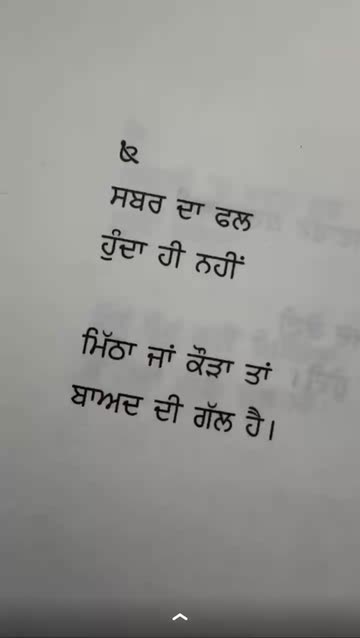 ਸਬਰ ਦਾ ਫਲ
ਹੁੰਦਾ ਹੀ ਨਹੀਂ
ਮਿੱਠਾ ਜਾਂ ਕੌੜਾ ਤਾਂ
ਬਾਅਦ ਦੀ ਗੱਲ ਹੈ।